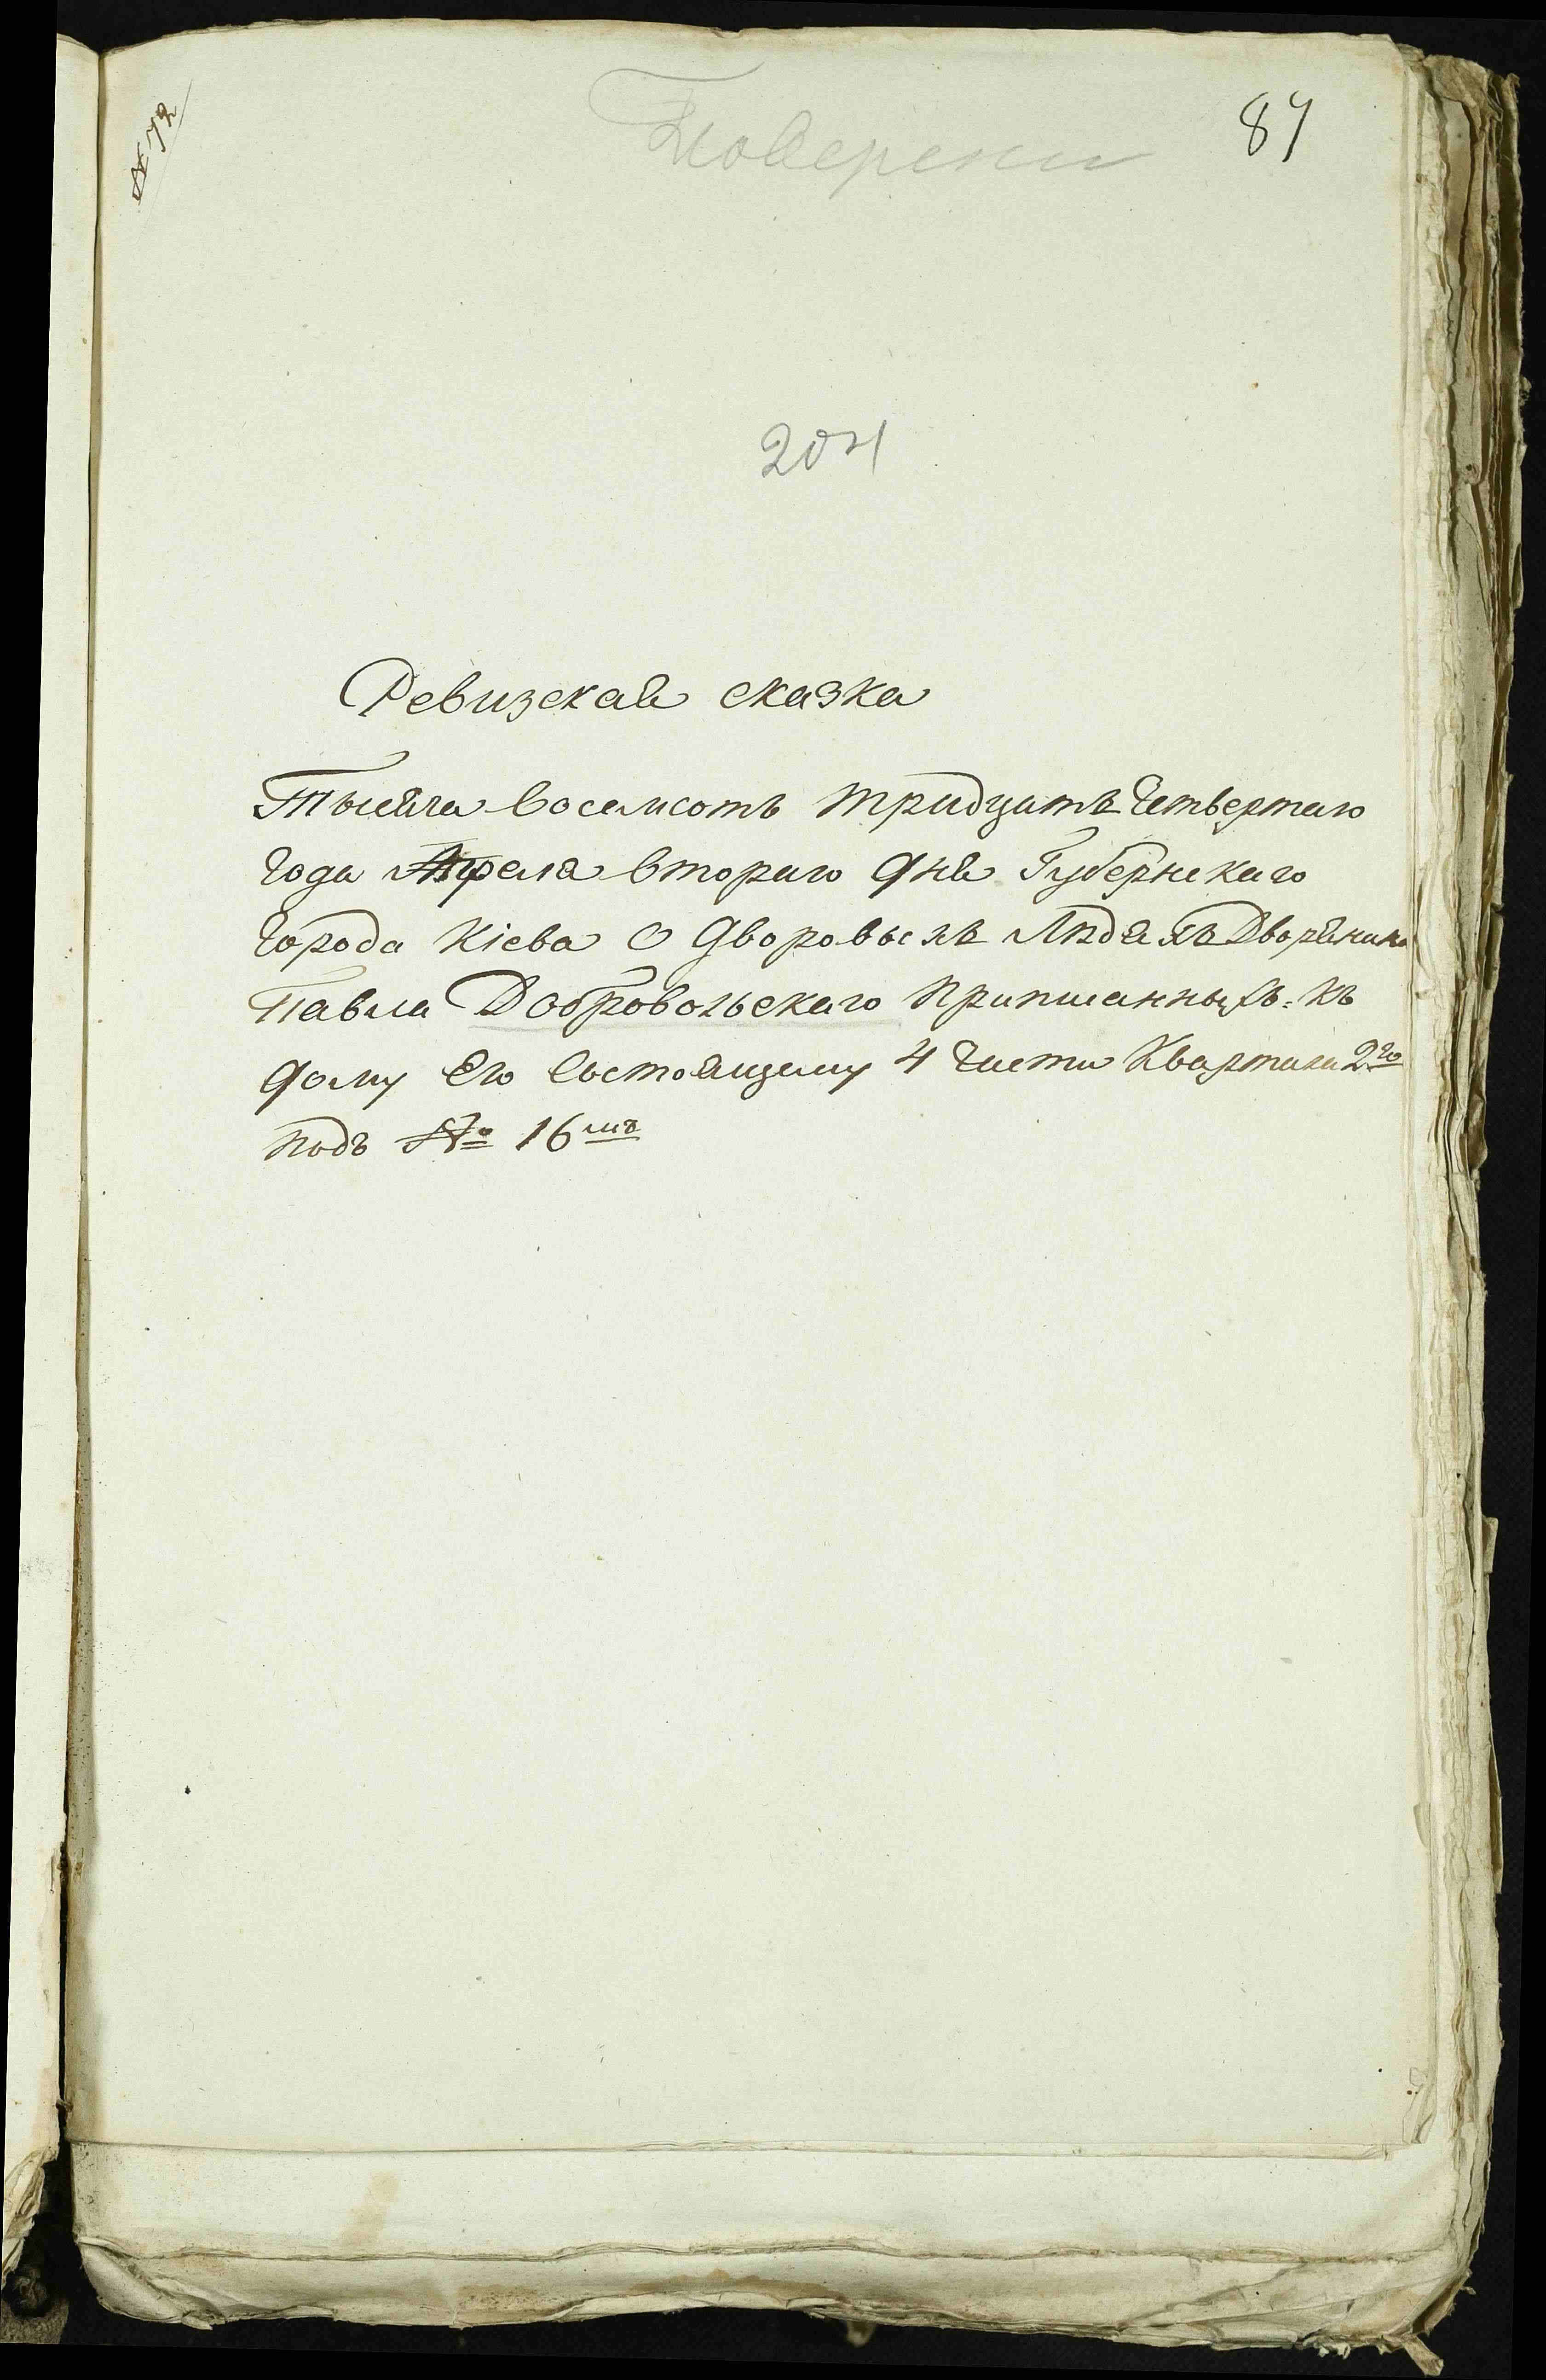 № 72
87
204
Ревизская сказка
Тысяча восемсотъ тридцать четвертаго
года Апреля втораго дня Губернскаго
города Кіева О дворовыхъ людяхъ Дворянина
Павла Добровольскаго приписанныхъ къ
дому его состоящему 4 части Квартала 2го
подъ № 16мъ